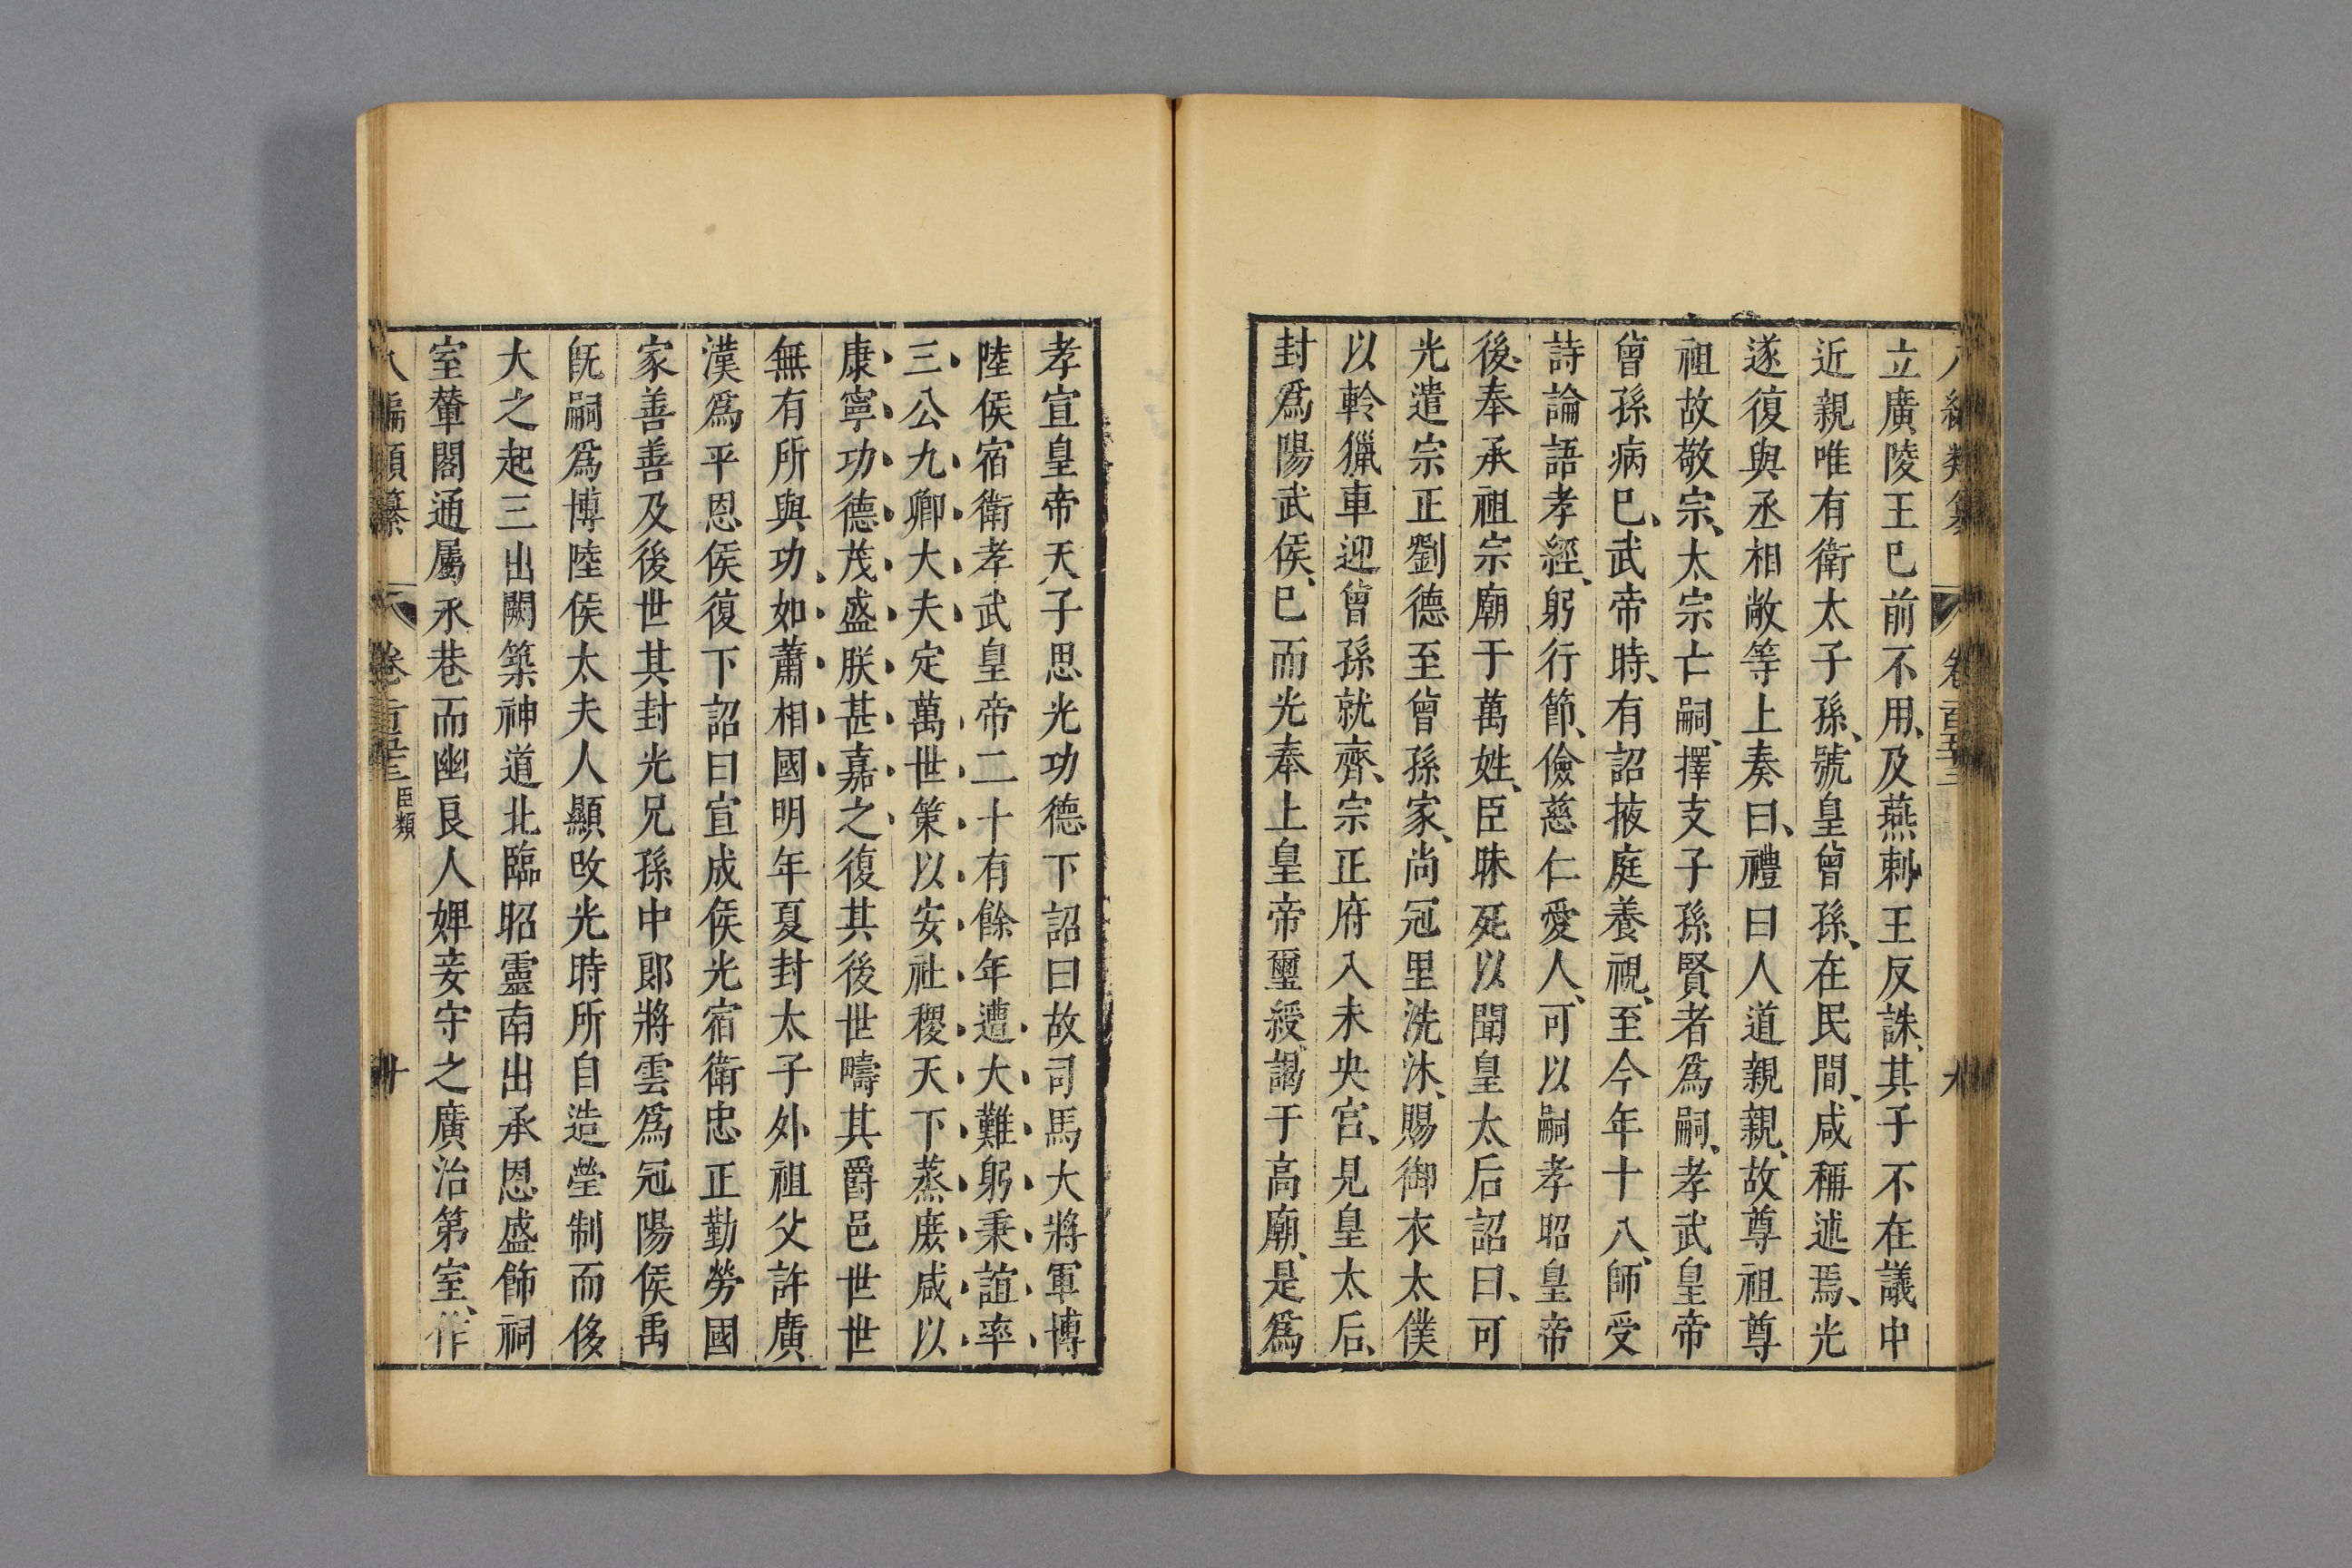 立廣陵王已前不用及燕剌王反誅其子不在議中
近親唯有衛太子孫號皇曾孫在民間咸稱述焉光
遂復與丞相敞等上奏曰禮曰人道親親故尊祖尊
祖故敬宗太宗亡嗣擇支子孫賢者爲嗣孝武皇帝
曾孫病已武帝時有詔掖庭養視至今年十八師受
詩論語孝經躬行節儉慈仁愛人可以嗣孝昭皇帝
後奉承祖宗廟于萬姓臣昧死以聞皇太后詔曰可
光遣宗正劉德至曾孫家尚冠里洗沐賜御衣太僕
以軨獵車迎曾孫就齊宗正府入未央宮見皇太后
封爲陽武侯已而光奉上皇帝璽綬謁于高廟是爲
孝宣皇帝天子思光功德下詔曰故司馬大將軍博
陸侯宿衛孝武皇帝二十有餘年遭大難躬秉誼率
三公九卿大夫定萬世策以安社稷天下蒸庶咸以
康寧功德茂盛朕甚嘉之復其後世疇其爵邑世世
無有所與功如蕭相國明年夏封太子外祖父許廣
漢爲平恩侯復下詔曰宣成侯光宿衛忠正勤勞國
家善善及後世其封光兄孫中郎將雲爲冠陽侯禹
既嗣爲博陸侯太夫人顯改光時所自造塋制而侈
大之起三出闕築神道北臨昭靈南出承恩盛飾祠
室輦閣通屬永巷而幽良人婢妾守之廣治第室作
八編類纂 卷一百五十三 臣類 十